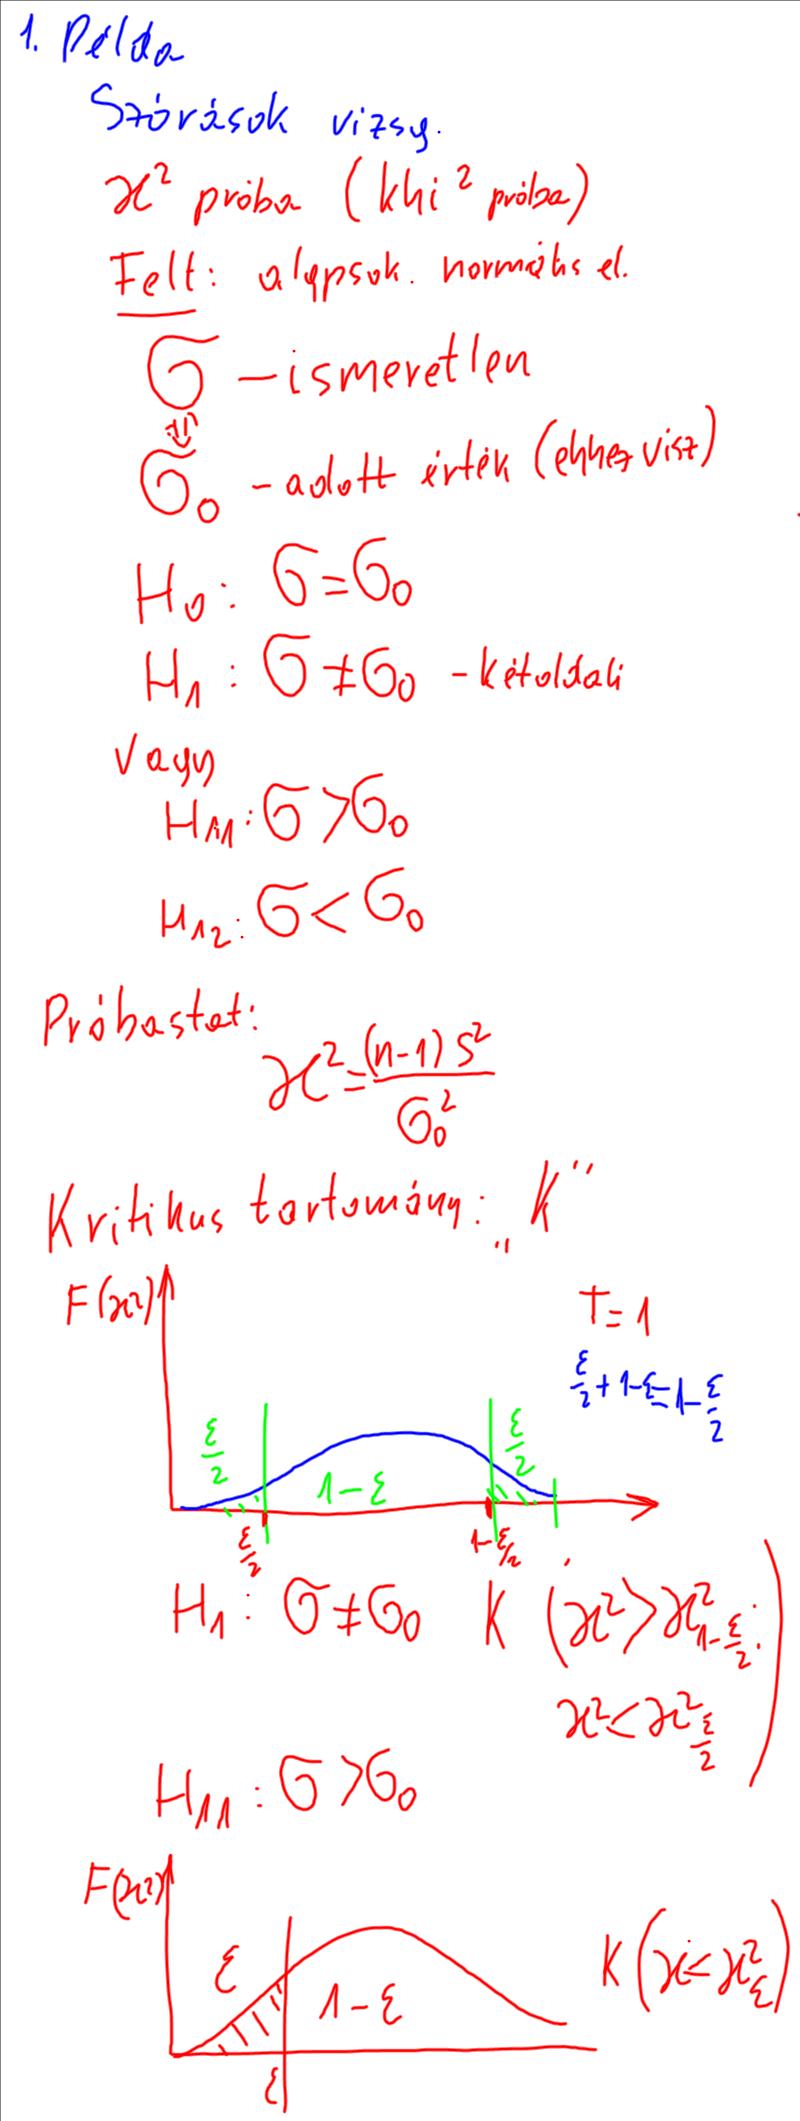 1. Példa
Szórások vizsg.
χ² próba (khi² próba)
Felt: alapsok. normális el.
σ – ismeretlen
⇓
σ₀ – adott érték (ehhez visz)
H₀: σ = σ₀
H₁: σ ≠ σ₀ – kétoldali
Vagy
H₁₁: σ > σ₀
H₁₂: σ < σ₀
Próbastat:
χ² = (n-1) s² / σ₀²
Kritikus tartomány: „K”
F(χ²)
T = 1
ε/2 + 1-ε = 1-ε/2
ε/2 1-ε ε/2
ε/2 1-ε/2
H₁: σ ≠ σ₀ K (χ² > χ²₁₋ε/₂;
χ² < χ² ε/2)
H₁₁: σ > σ₀
F(χ²)
ε 1-ε K(χ² < χ²ε)
ε